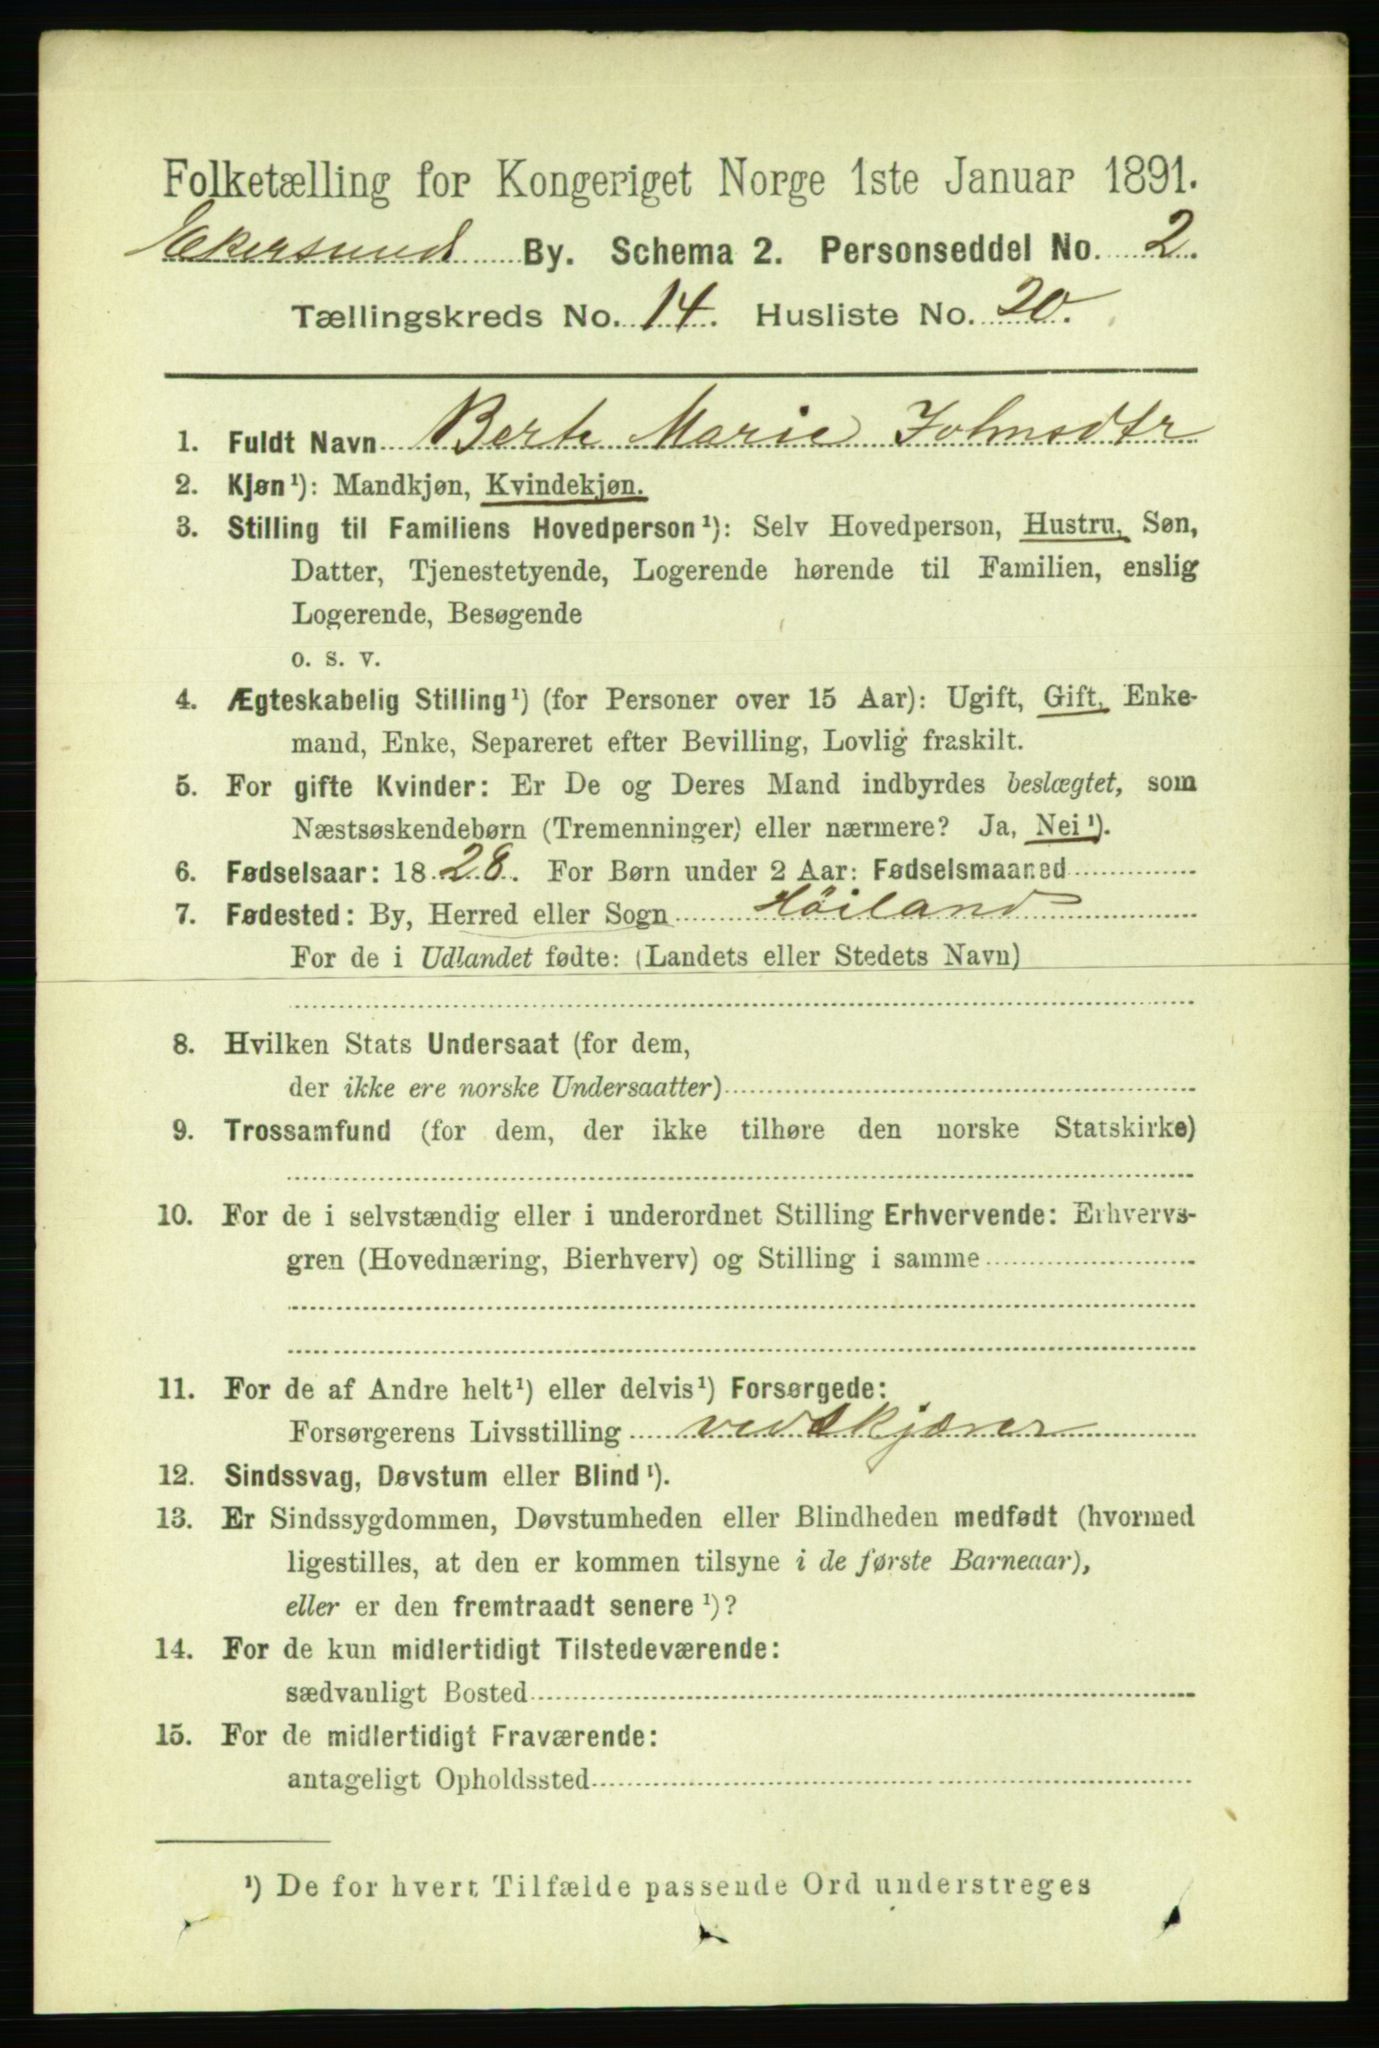 Folketælling for Kongeriget Norge 1ste Januar 1891.
Ekersund By. Schema 2. Personseddel No. 2.
Tællingskreds No. 14. Husliste No. 20.
1. Fuldt Navn Berte Marie Johnsdtr
2. Kjøn¹): Mandkjøn, Kvindekjøn.
3. Stilling til Familiens Hovedperson¹): Selv Hovedperson, Hustru, Søn,
Datter, Tjenestetyende, Logerende hørende til Familien, enslig
Logerende, Besøgende
o. s. v.
4. Ægteskabelig Stilling¹) (for Personer over 15 Aar): Ugift, Gift, Enke-
mand, Enke, Separeret efter Bevilling, Lovlig fraskilt.
5. For gifte Kvinder: Er De og Deres Mand indbyrdes beslægtet, som
Næstsøskendebørn (Tremenninger) eller nærmere? Ja, Nei¹).
6. Fødselsaar: 1828. For Børn under 2 Aar: Fødselsmaaned
7. Fødested: By, Herred eller Sogn Höiland
For de i Udlandet fødte: (Landets eller Stedets Navn)
8. Hvilken Stats Undersaat (for dem,
der ikke ere norske Undersaatter)
9. Trossamfund (for dem, der ikke tilhøre den norske Statskirke)
10. For de i selvstændig eller i underordnet Stilling Erhvervende: Erhvervs-
gren (Hovednæring, Bierhverv) og Stilling i samme
11. For de af Andre helt¹) eller delvis¹) Forsørgede:
Forsørgerens Livsstilling vedskjærer
12. Sindssvag, Døvstum eller Blind¹).
13. Er Sindssygdommen, Døvstumheden eller Blindheden medfødt (hvormed
ligestilles, at den er kommen tilsyne i de første Barneaar),
eller er den fremtraadt senere¹)?
14. For de kun midlertidigt Tilstedeværende:
sædvanligt Bosted
15. For de midlertidigt Fraværende:
antageligt Opholdssted
¹) De for hvert Tilfælde passende Ord understreges